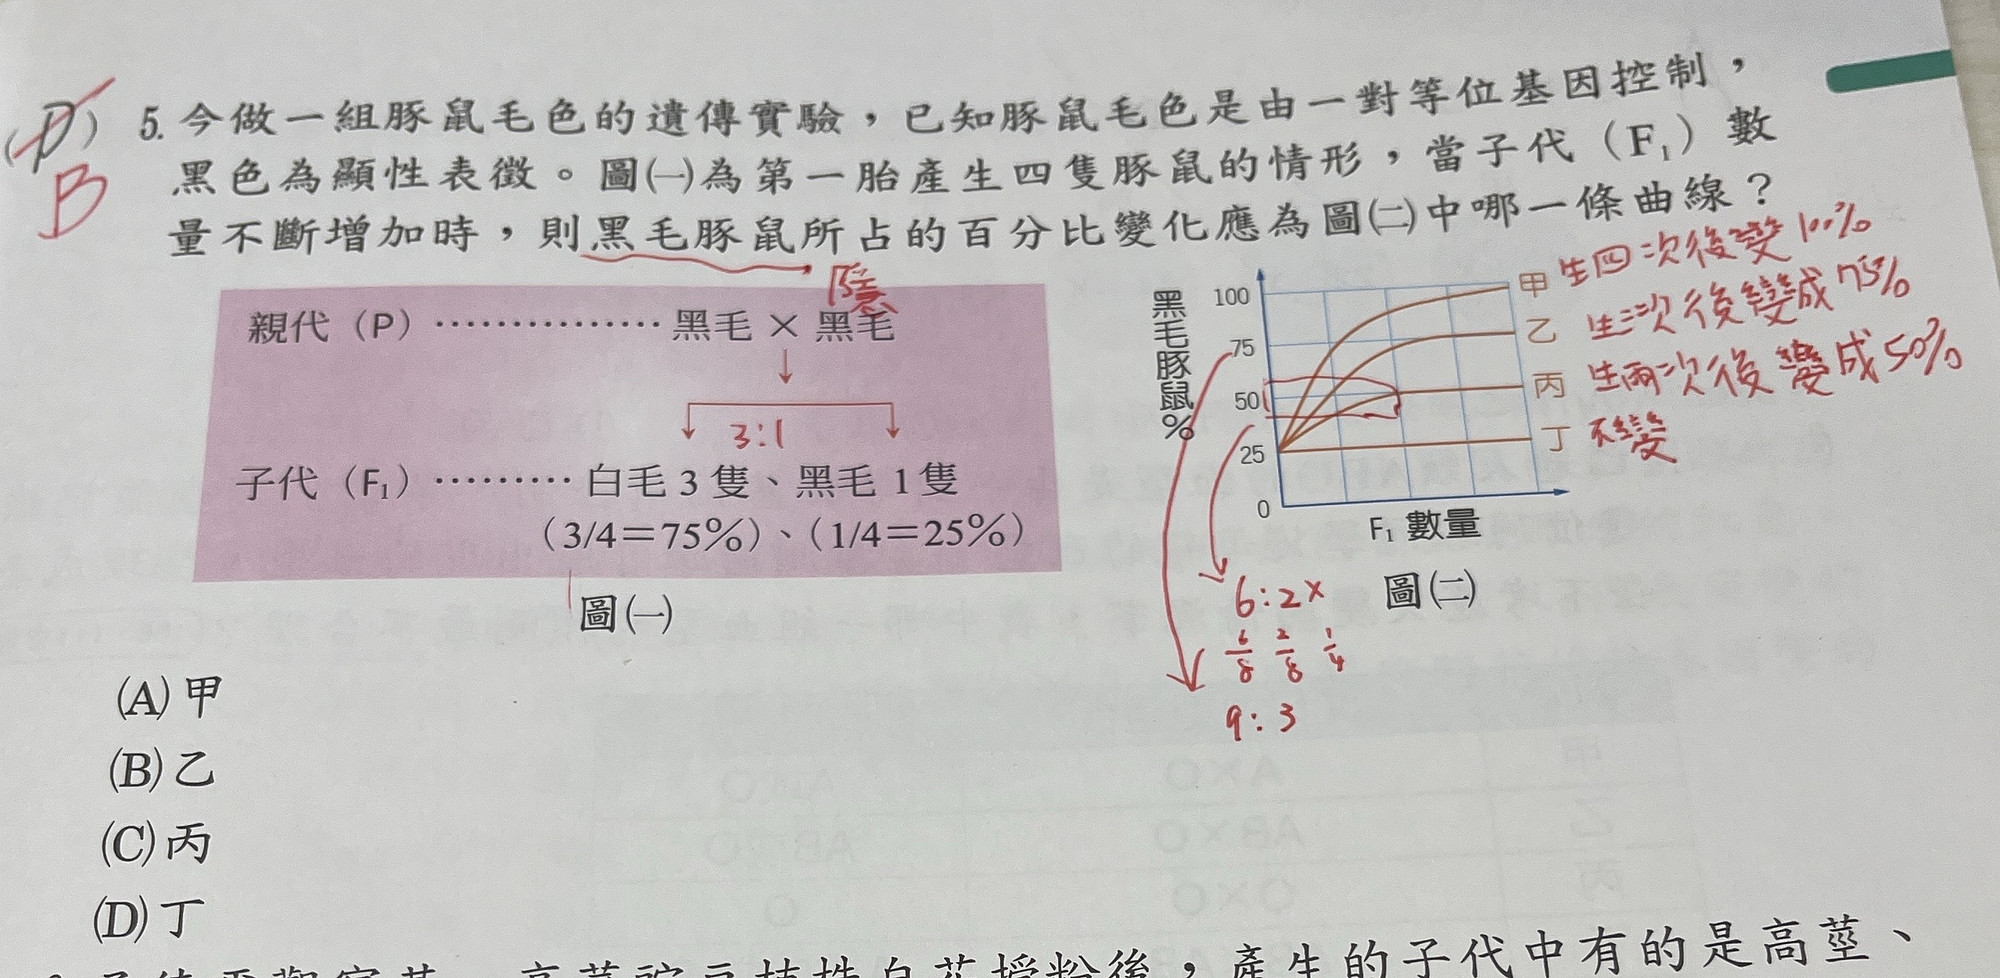 (D)
B
5. 今做一組豚鼠毛色的遺傳實驗，已知豚鼠毛色是由一對等位基因控制，
黑色為顯性表徵。圖㈠為第一胎產生四隻豚鼠的情形，當子代（F₁）數
量不斷增加時，則黑毛豚鼠所占的百分比變化應為圖㈡中哪一條曲線？
隱
親代（P）…………… 黑毛 × 黑毛
3:1
子代（F₁）……… 白毛 3 隻、黑毛 1 隻
（3/4＝75％）、（1/4＝25％）
圖㈠
黑毛豚鼠％
100
75
50
25
0
甲 生四次後變100%
乙 生三次後變成75%
丙 生兩次後變成50%
丁 不變
F₁ 數量
圖㈡
6:2×
6/8 2/8 1/4
9:3
(A) 甲
(B) 乙
(C) 丙
(D) 丁
高莖豌豆枝性白花授粉後，產生的子代中有的是高莖、